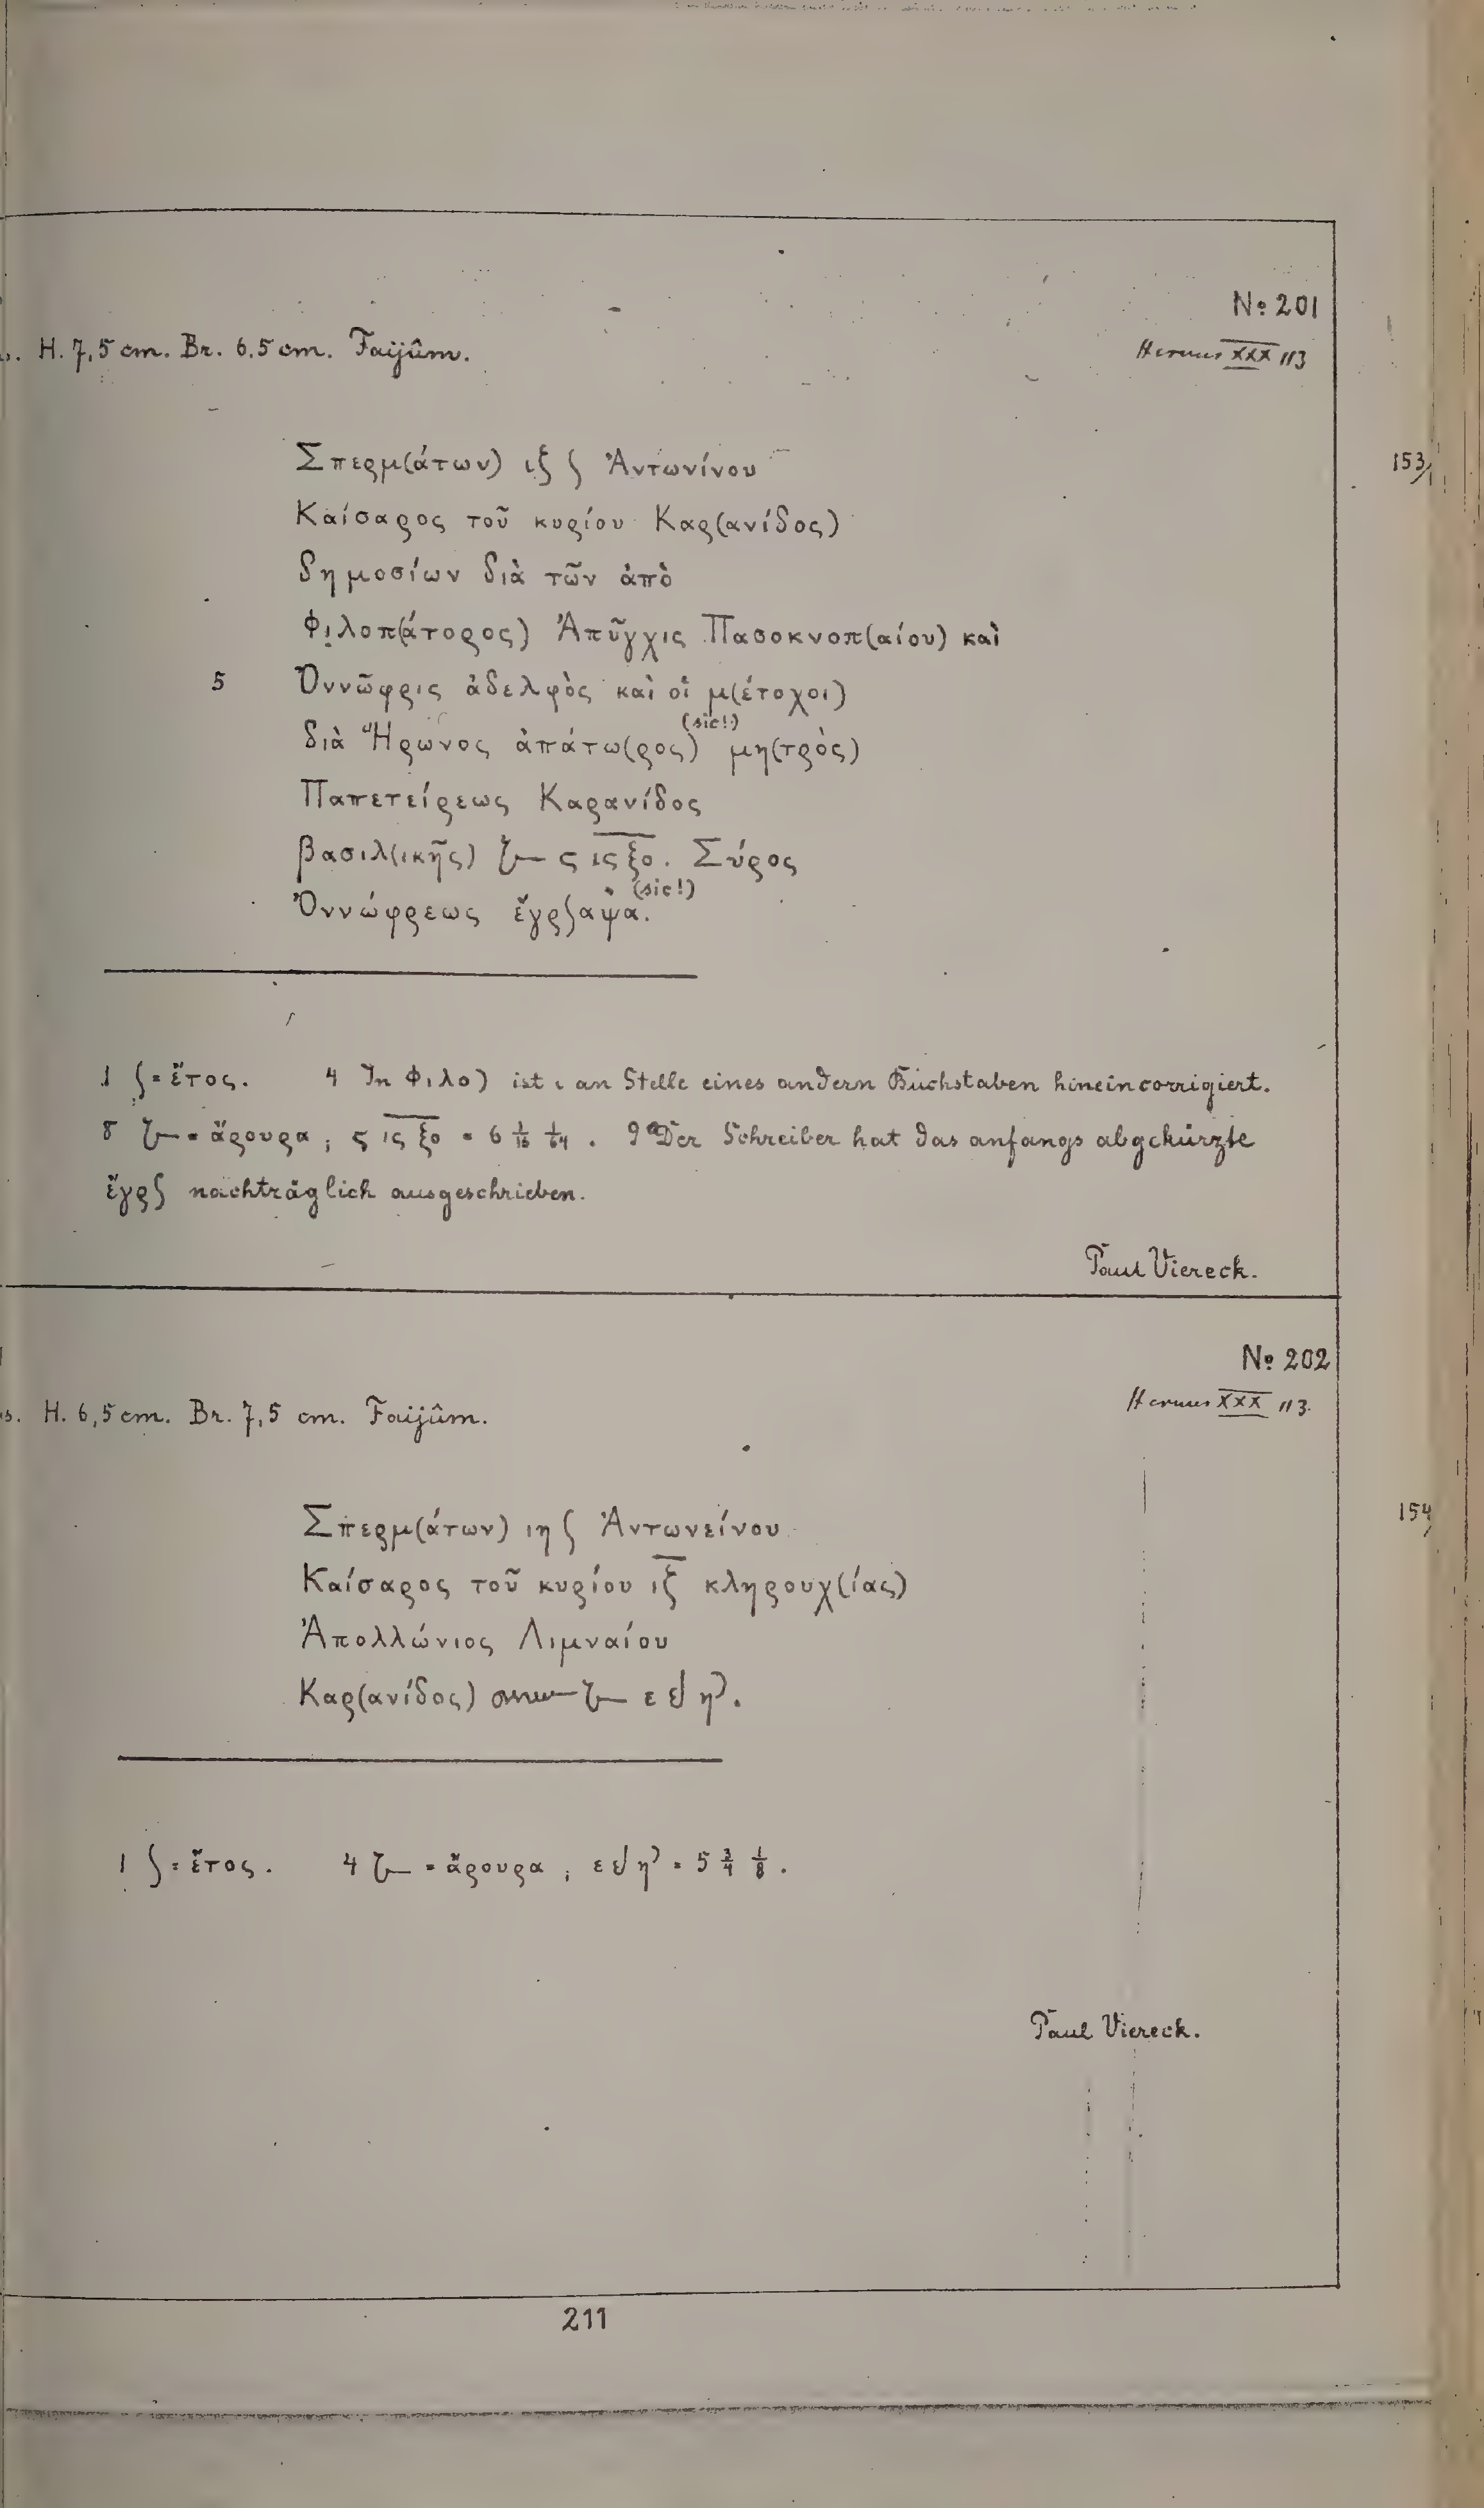 No 201
H. 7,5 cm. Br. 6.5 cm. Faijûm.
Hermes XXX 113
Σπερμ(άτων) ιξ ʃ Ἀντωνίνου
153
Καίσαρος τοῦ κυρίου Καρ(ανίδος)
δημοσίων διὰ τῶν ἀπὸ
Φιλοπ(άτορος) Ἀπῦγχις Πασοκνοπ(αίου) καὶ
5 Ὀννῶφρις ἀδελφὸς καὶ οἱ μ(έτοχοι)
(sic!)
διὰ Ἥρωνος ἀπάτω(ρος) μη(τρὸς)
Παπετείρεως Καρανίδος
βασιλ(ικῆς) ϛ ις ξο. Σύρος
(sic!)
Ὀννώφρεως ἔγρʃαψα.
1 ʃ = ἔτος. 4 In Φιλο) ist ι an Stelle eines andern Buchstaben hineincorrigiert.
8 = ἄρουρα; ϛ ις ξο = 6 1/16 1/64. 9 Der Schreiber hat das anfangs abgekürzte
ἔγρʃ nachträglich ausgeschrieben.
Paul Viereck.
No 202
H. 6,5 cm. Br. 7,5 cm. Faijûm.
Hermes XXX 113.
Σπερμ(άτων) ιη ʃ Ἀντωνείνου
154
Καίσαρος τοῦ κυρίου ιξ κληρουχ(ίας)
Ἀπολλώνιος Λιμναίου
Καρ(ανίδος) ε η.
1 ʃ = ἔτος. 4 = ἄρουρα; ε η = 5 3/4 1/8.
Paul Viereck.
211